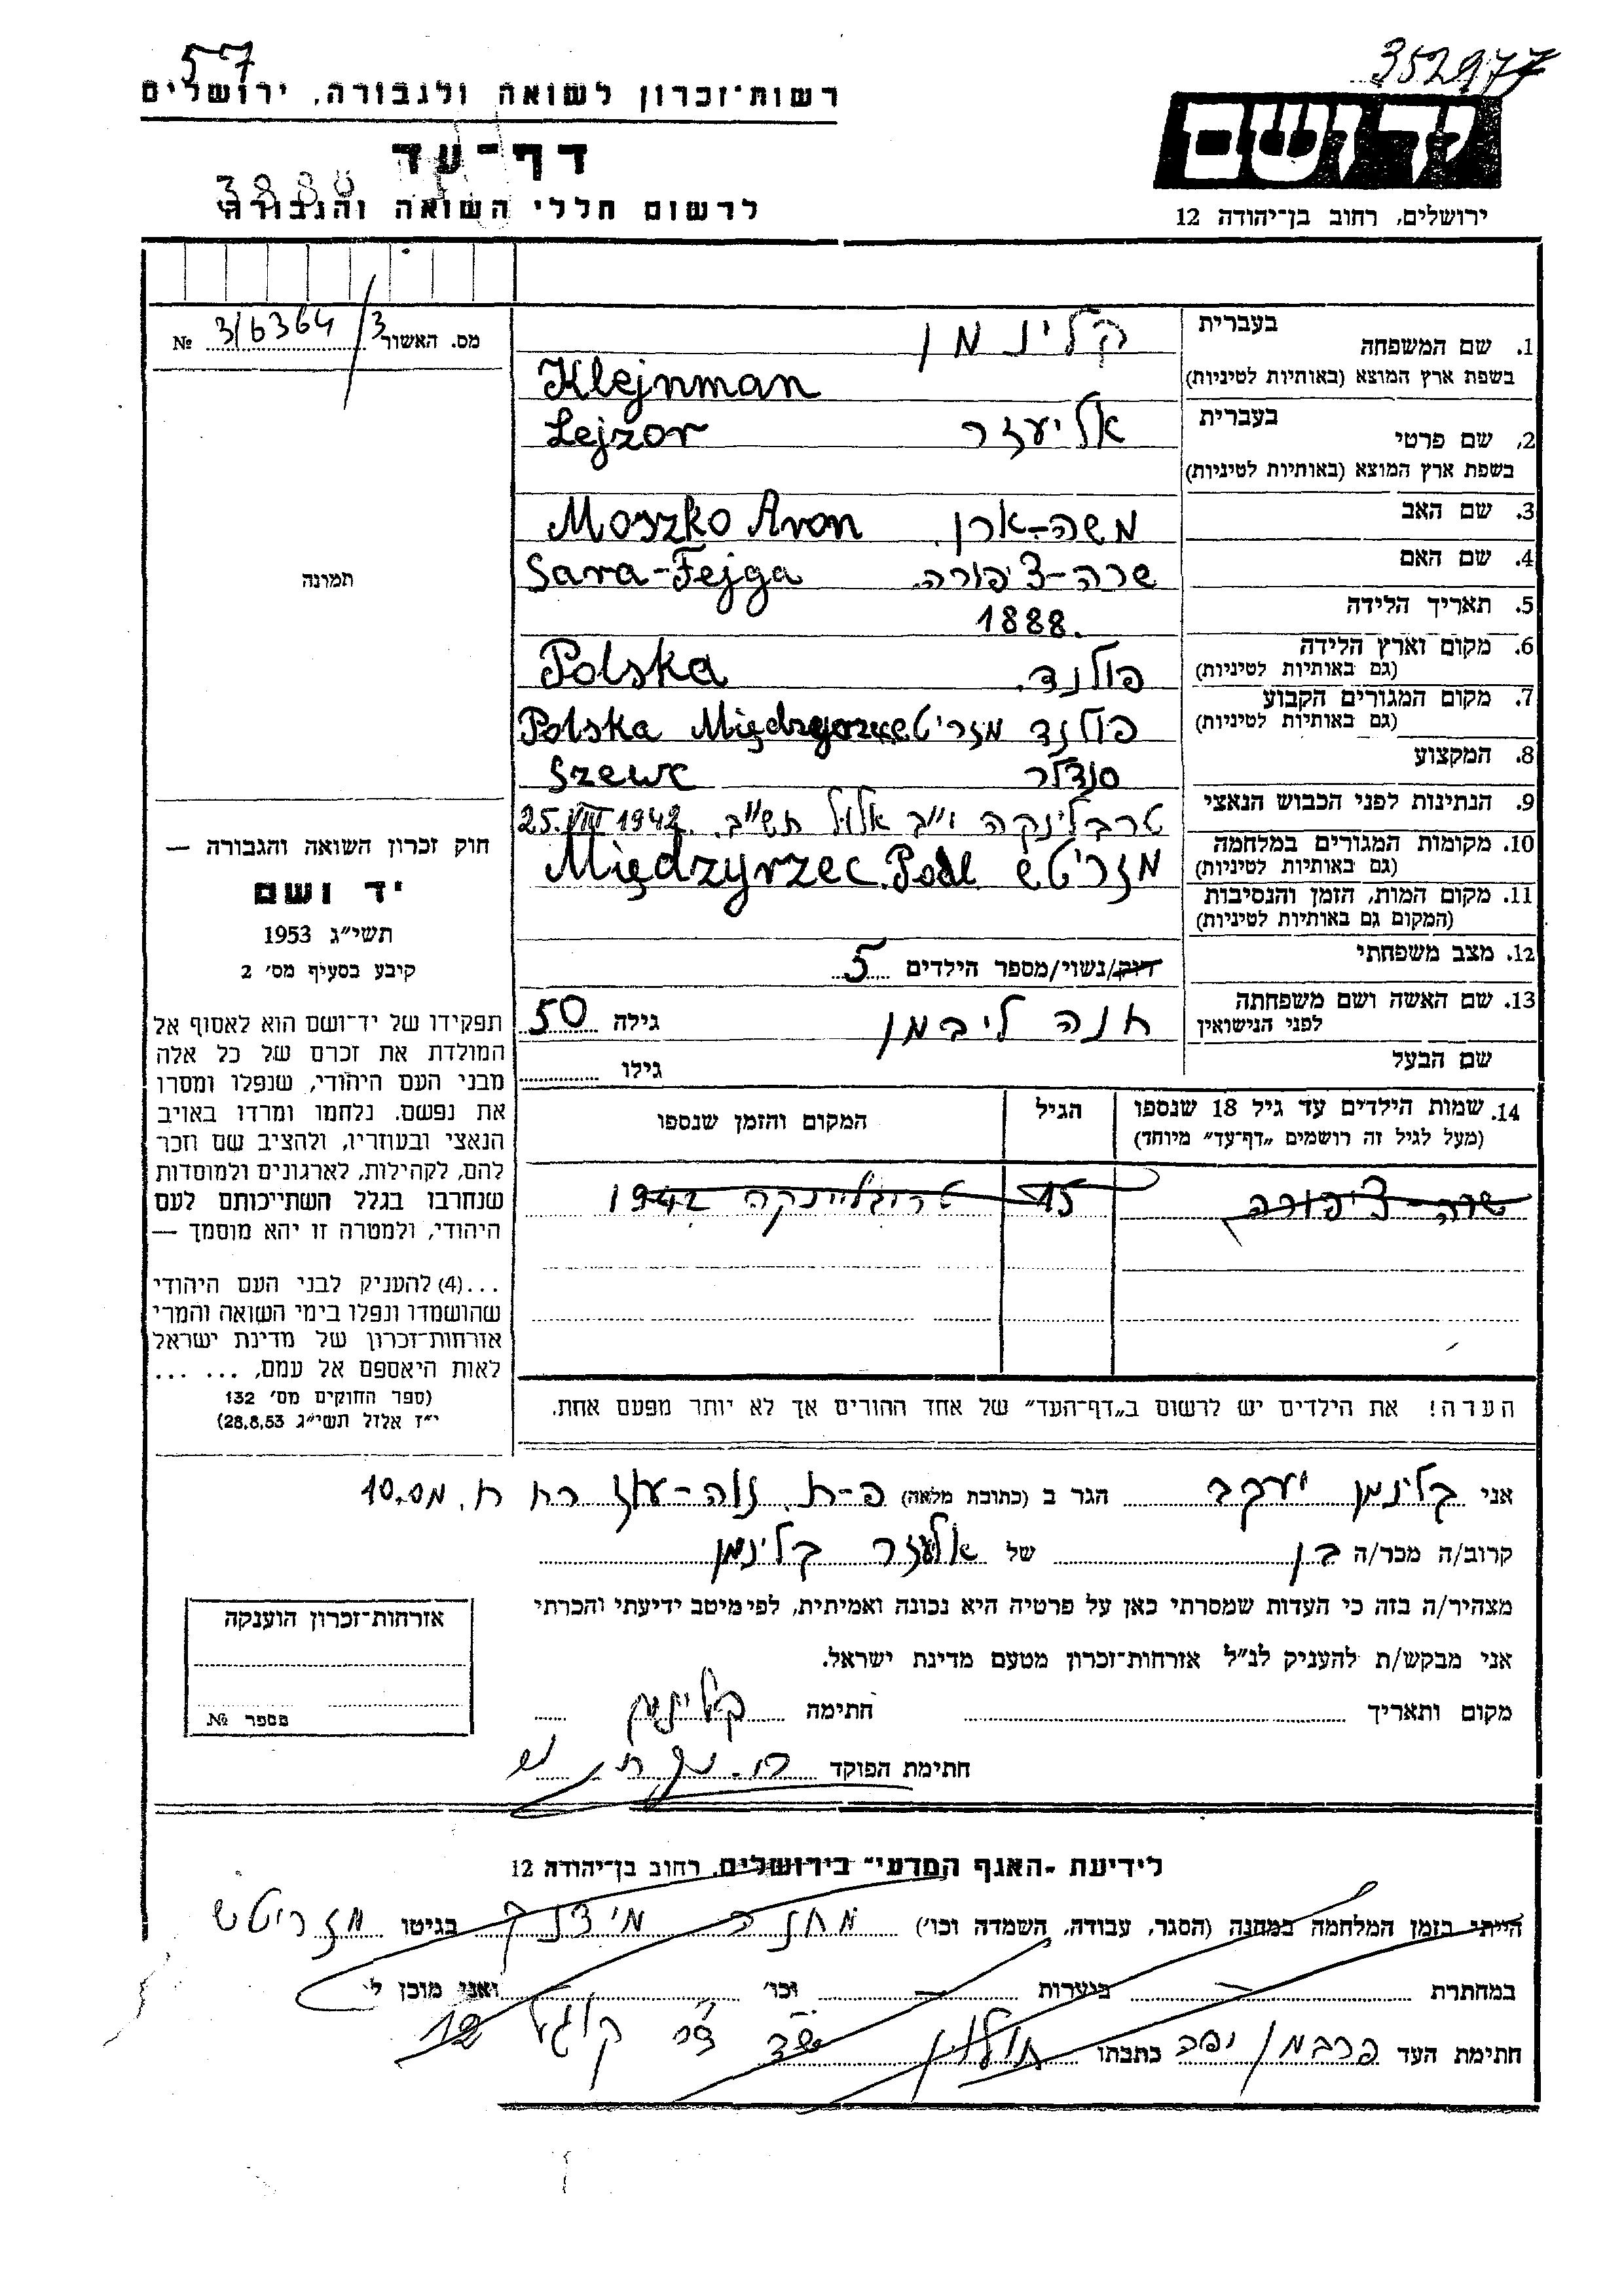 57
352977
רשות־זכרון לשואה ולגבורה, ירושלים
יד ושם
דף־עד
לרשום חללי השואה והגבורה
ירושלים, רחוב בן־יהודה 12
מס. האשור 316364/3 №
1. שם המשפחה בעברית קלינמן
בשפת ארץ המוצא (באותיות לטיניות) Klejnman
2. שם פרטי בעברית אליעזר Lejzor
בשפת ארץ המוצא (באותיות לטיניות)
3. שם האב משה-ארן Moszko Aron
4. שם האם שרה-ציפורה Sara-Fejga
5. תאריך הלידה 1888.
6. מקום וארץ הלידה פולנד. Polska
(גם באותיות לטיניות)
7. מקום המגורים הקבוע פולנד מזריטש Polska
(גם באותיות לטיניות)
8. המקצוע סנדלר Szewc
9. הנתינות לפני הכבוש הנאצי טרבלינקה י"ב אלול תש"ב. 25.VIII 1942
10. מקומות המגורים במלחמה מזריטש Międzyrzec Podl.
(גם באותיות לטיניות)
11. מקום המות, הזמן והנסיבות
(המקום גם באותיות לטיניות)
12. מצב משפחתי רווק/נשוי/מספר הילדים 5
13. שם האשה ושם משפחתה חנה ליבמן גילה 50
לפני הנישואין
שם הבעל גילו
תמונה
חוק זכרון השואה והגבורה —
יד ושם
תשי״ג 1953
קיבע בסעיף מס׳ 2
תפקידו של יד־ושם הוא לאסוף אל
המולדת את זכרם של כל אלה
מבני העם היהודי, שנפלו ומסרו
את נפשם. נלחמו ומרדו באויב
הנאצי ובעוזריו, ולהציב שם וזכר
להם, לקהילות, לארגונים ולמוסדות
שנחרבו בגלל השתייכותם לעם
היהודי, ולמטרה זו יהא מוסמך —
...(4) להעניק לבני העם היהודי
שהושמדו ונפלו בימי השואה והמרי
אזרחות־זכרון של מדינת ישראל
לאות היאספם אל עמם, ... ...
(ספר החוקים מס׳ 132
י״ז אלול תשי״ג 28.8.53)
14. שמות הילדים עד גיל 18 שנספו הגיל המקום והזמן שנספו
(מעל לגיל זה רושמים „דף־עד״ מיוחד)
שרה-ציפורה 15 1942
הערה! את הילדים יש לרשום ב„דף־העד״ של אחד ההורים אך לא יותר מפעם אחת.
אני קלינמן יעקב הגר ב (כתובת מלאה) פ-ת. נוה-עוז רח ח. מס. 10
קרוב/ה מכר/ה בן של אלעזר קלינמן
מצהיר/ה בזה כי העדות שמסרתי כאן על פרטיה היא נכונה ואמיתית, לפי מיטב ידיעתי והכרתי
אני מבקש/ת להעניק לנ״ל אזרחות־זכרון מטעם מדינת ישראל.
מקום ותאריך חתימה קלינמן
חתימת הפוקד
אזרחות־זכרון הוענקה
מספר №
לידיעת „האגף המדעי״ בירושלים, רחוב בן־יהודה 12
הייתי בזמן המלחמה במחנה (הסגר, עבודה, השמדה וכו׳) מחנה מידנק בגיטו מזריטש
במחתרת ביערות וכו׳ ואני מוכן ל
חתימת העד פרבמן יפה כתבתו חולון 12